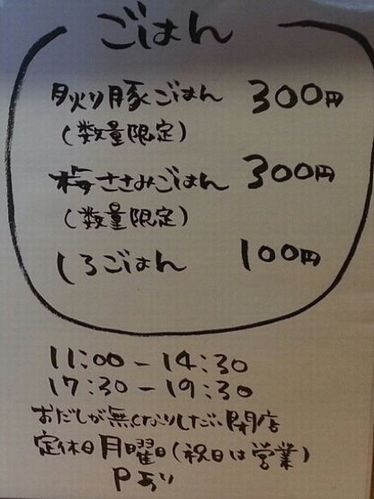 ごはん
炙り豚ごはん 300円
(数量限定)
梅ささみごはん 300円
(数量限定)
しろごはん 100円
11:00-14:30
17:30-19:30
おだしが無くなりしだい閉店
定休日月曜日(祝日は営業)
Pあり